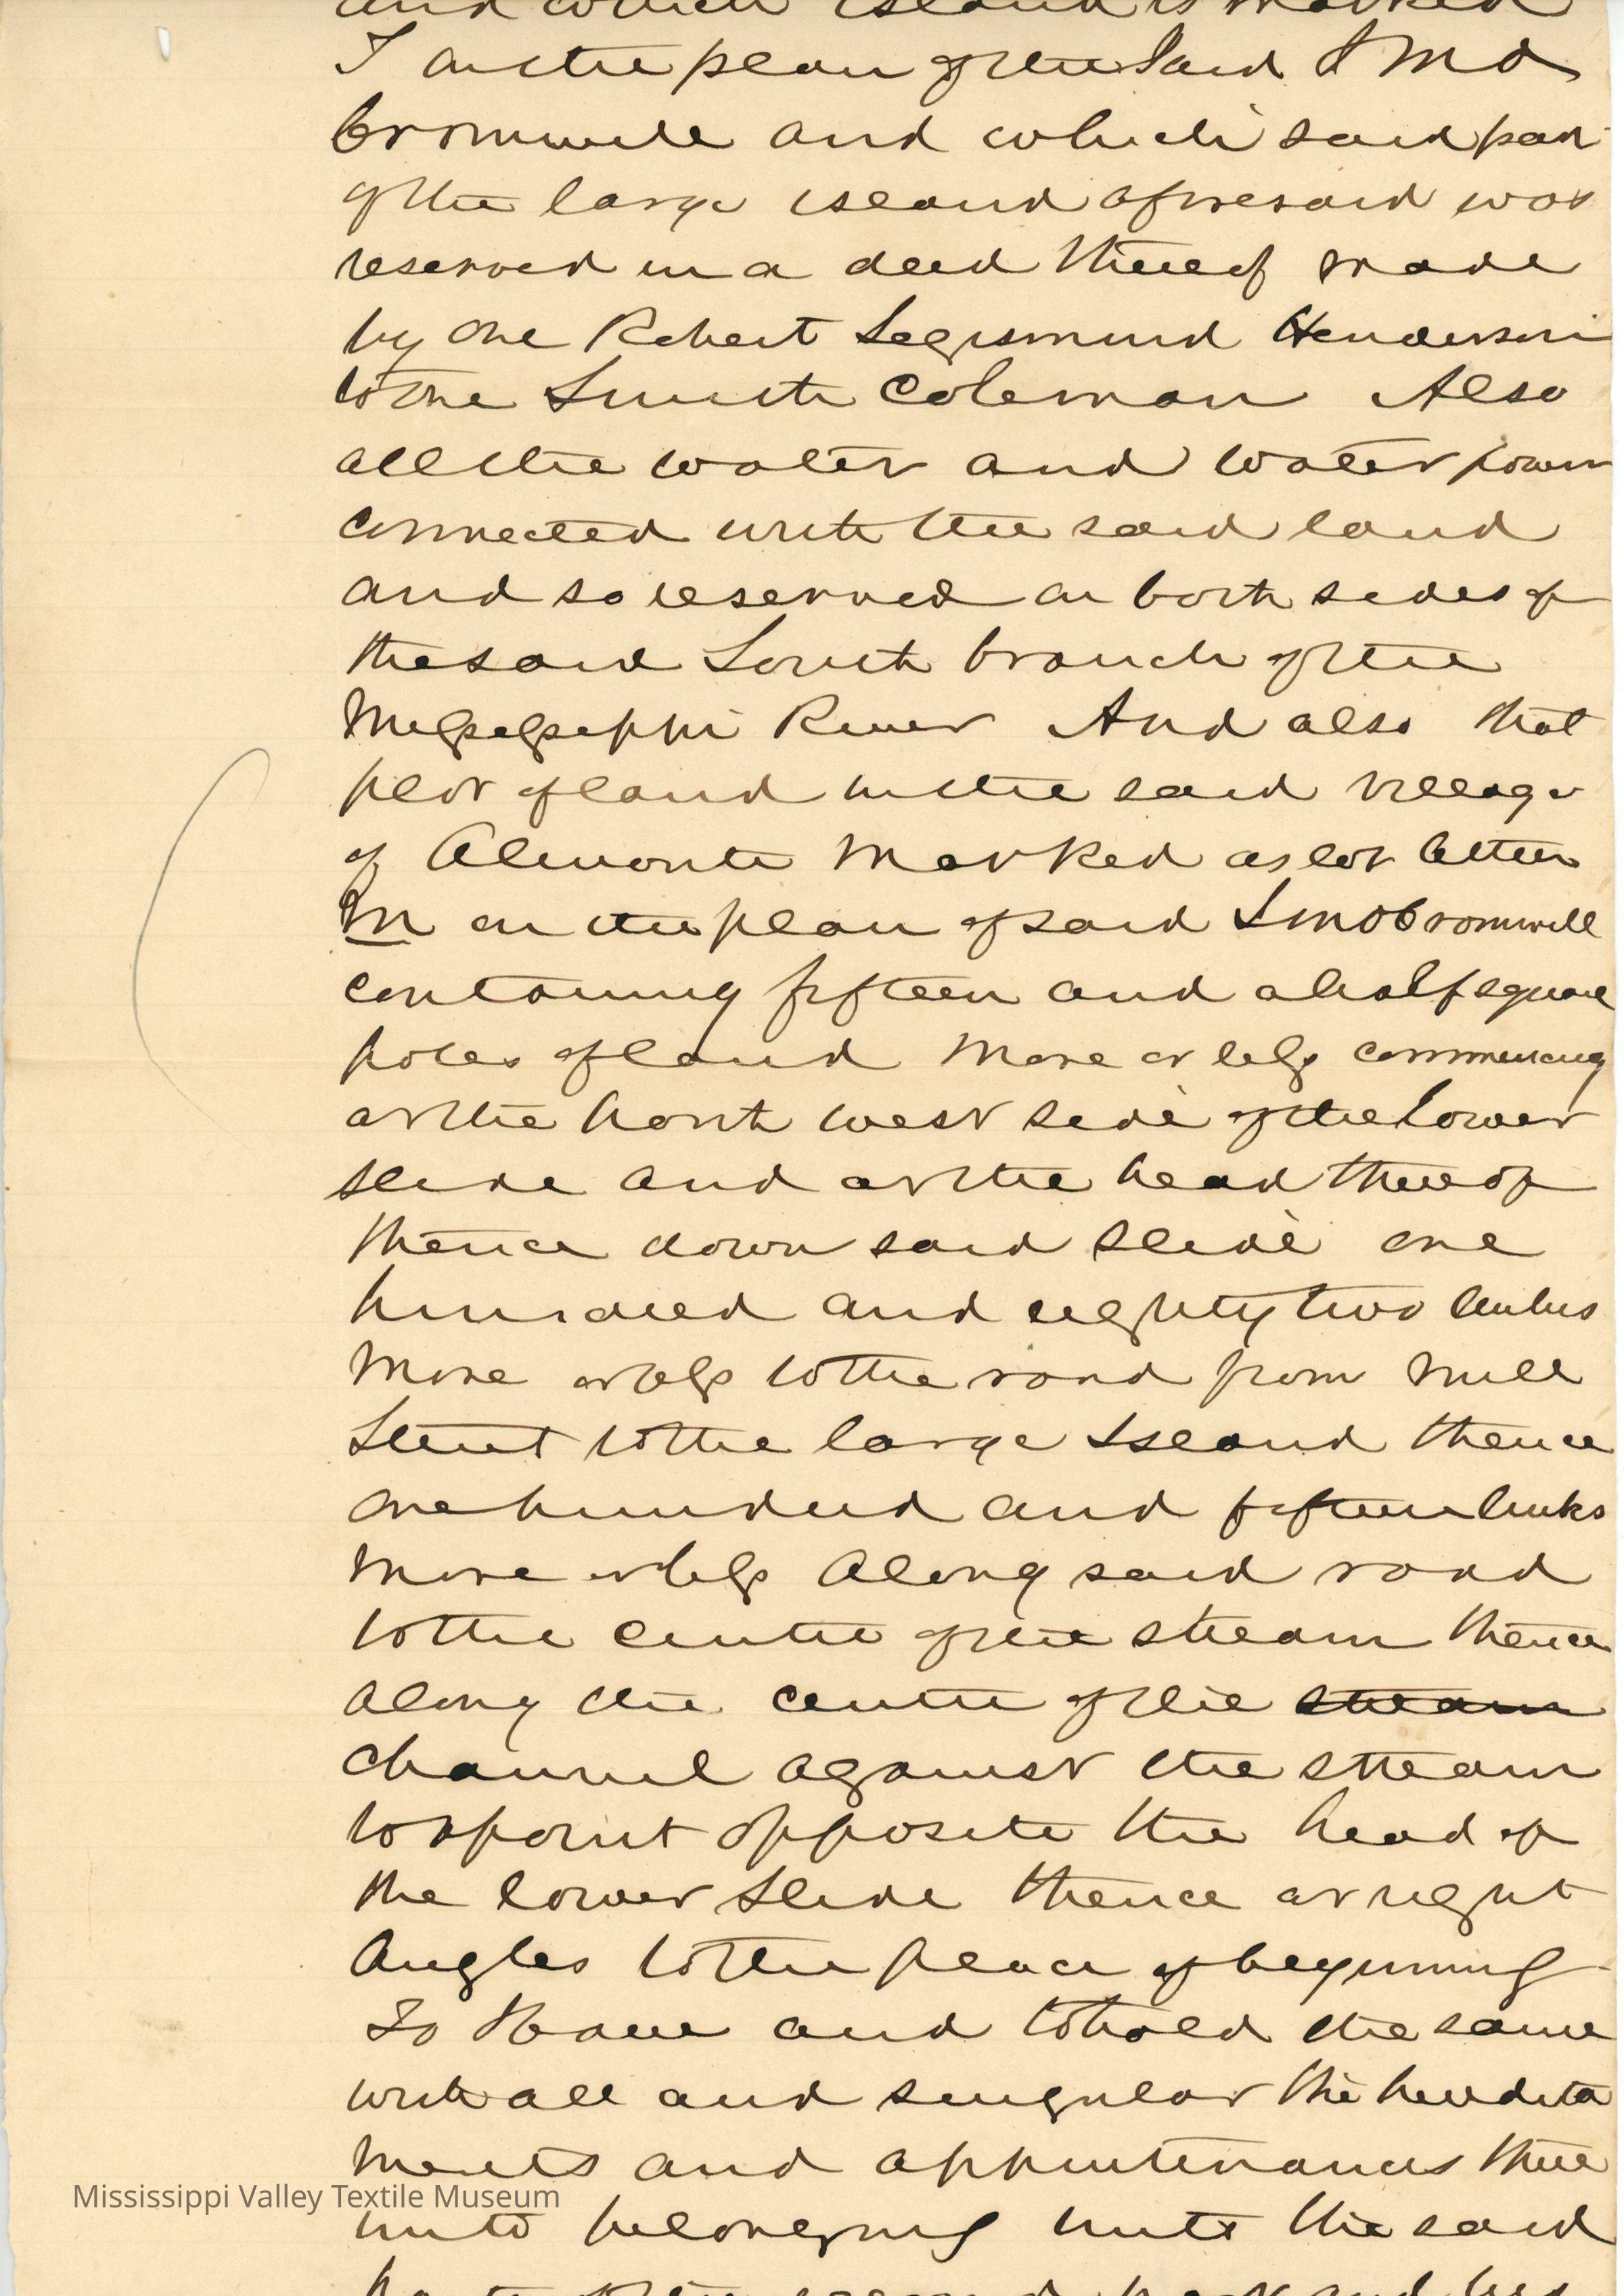 and which island is marked
I on the plan of the said J M O
Cromwell and which said part
of the large island aforesaid was
reserved in a deed thereof made
by one Robert Segismund Henderson
to one Smith Coleman Also
all the water and water power
connected with the said land
and so reserved on both sides of
the said South branch of the
Mississippi River And also that
plot of land in the said village
of Almonte Marked as lot letter
M on the plan of said J M O Cromwell
containing fifteen and a half square
poles of land More or less commencing
at the North west side of the lower
slide and at the head thereof
thence down said slide one
hundred and eighty two links
More or less to the road from Mill
Street to the large Island thence
one hundred and fifteen links
More or less Along said road
to the centre of the stream thence
along the centre of the stream
channel against the stream
to a point opposite the head of
the lower slide thence at right
Angles to the place of beginning
To Have and to hold the same
with all and singular the heredita
ments and appurtenances there
unto belonging unto the said
Mississippi Valley Textile Museum